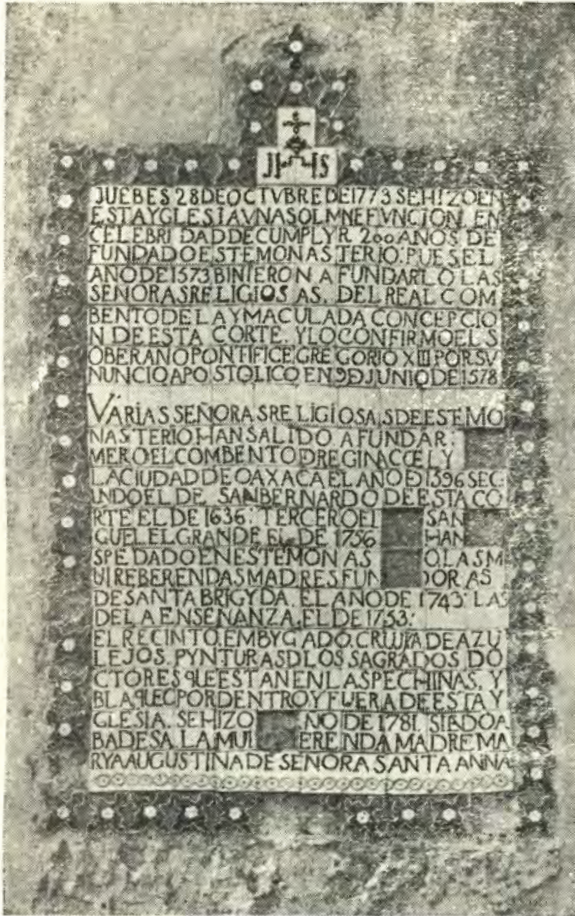 JHS
JUEBES 28 DE OCTVBRE DE 1773 SE HIZO EN
ESTA YGLESIA VNA SOLMNE FVNCION, EN
CELEBRIDAD DE CUMPLYR 200 AÑOS DE
FUNDADO ESTE MONASTERIO: PUES EL
AÑO DE 1573 BINIERON A FUNDARLO LAS
SEÑORAS RELIGIOSAS, DEL REAL COM
BENTO DE LA YMACULADA CONCEPCIO
N DE ESTA CORTE. Y LO CONFIRMO EL S
OBERANO PONTIFICE GREGORIO XIII POR SV
NUNCIO APOSTOLICO EN 9 D JUNIO DE 1578
VARIAS SEÑORAS RELIGIOSAS DE ESTE MO
NASTERIO HAN SALIDO A FUNDAR:
MERO EL COMBENTO D REGINA CŒLY
LA CIUDAD DE OAXACA EL AÑO D 1596 SEG
NDO EL DE SAN BERNARDO DE ESTA CO
RTE EL DE 1636: TERCERO EL SAN
GUEL EL GRANDE EL DE 1756 HAN
SPEDADO EN ESTE MONAS O LAS M
UI REBERENDAS MADRES FUN DORAS
DE SANTA BRIGYDA, EL AÑO DE 1743: LAS
DE LA ENSEÑANZA, EL DE 1753:
EL RECINTO, EMBYGADO, CRUJIA DE AZU
LEJOS, PYNTURAS D LOS SAGRADOS DO
CTORES QUE ESTAN EN LAS PECHINAS, Y
BLAQUEO POR DENTRO Y FUERA DE ESTA Y
GLESIA, SE HIZO ÑO DE 1781, SIEDO A
BADESA LA MUI ERENDA MADRE MA
RYA AUGUSTINA DE SEÑORA SANTA ANNA